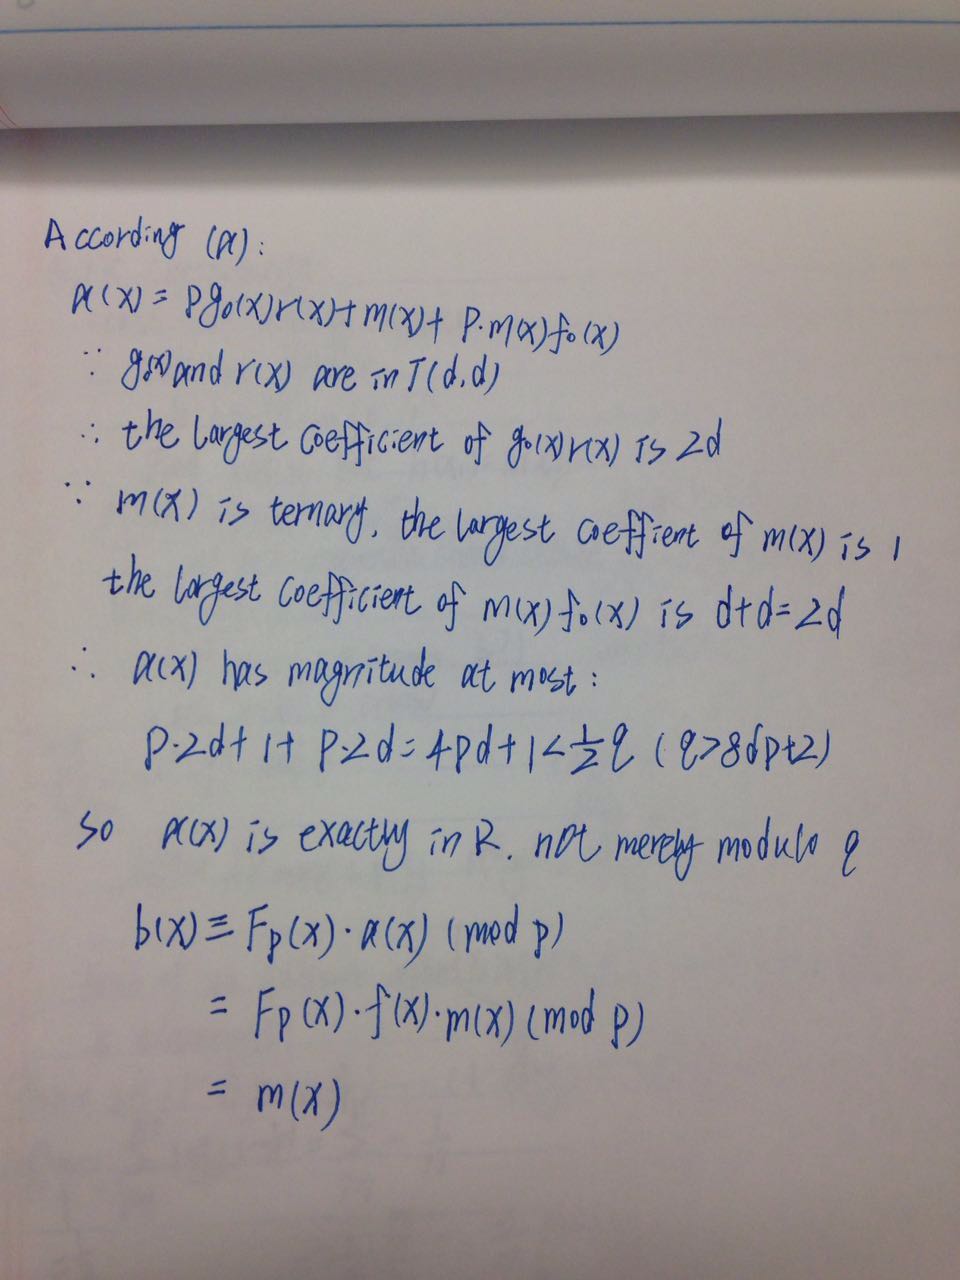 According (a):
a(x) = pg₀(x)r(x)+m(x)+ p·m(x)f₀(x)
∵ g₀(x) and r(x) are in T(d,d)
∴ the largest coefficient of g₀(x)r(x) is 2d
∵ m(x) is ternary, the largest coeffient of m(x) is 1
the largest coefficient of m(x)f₀(x) is d+d=2d
∴ a(x) has magnitude at most:
p·2d+1+ p·2d=4pd+1<½q (q>8dp+2)
so a(x) is exactly in R. not merely modulo q
b(x)≡ Fp(x)·a(x) (mod p)
= Fp(x)·f(x)·m(x) (mod p)
= m(x)